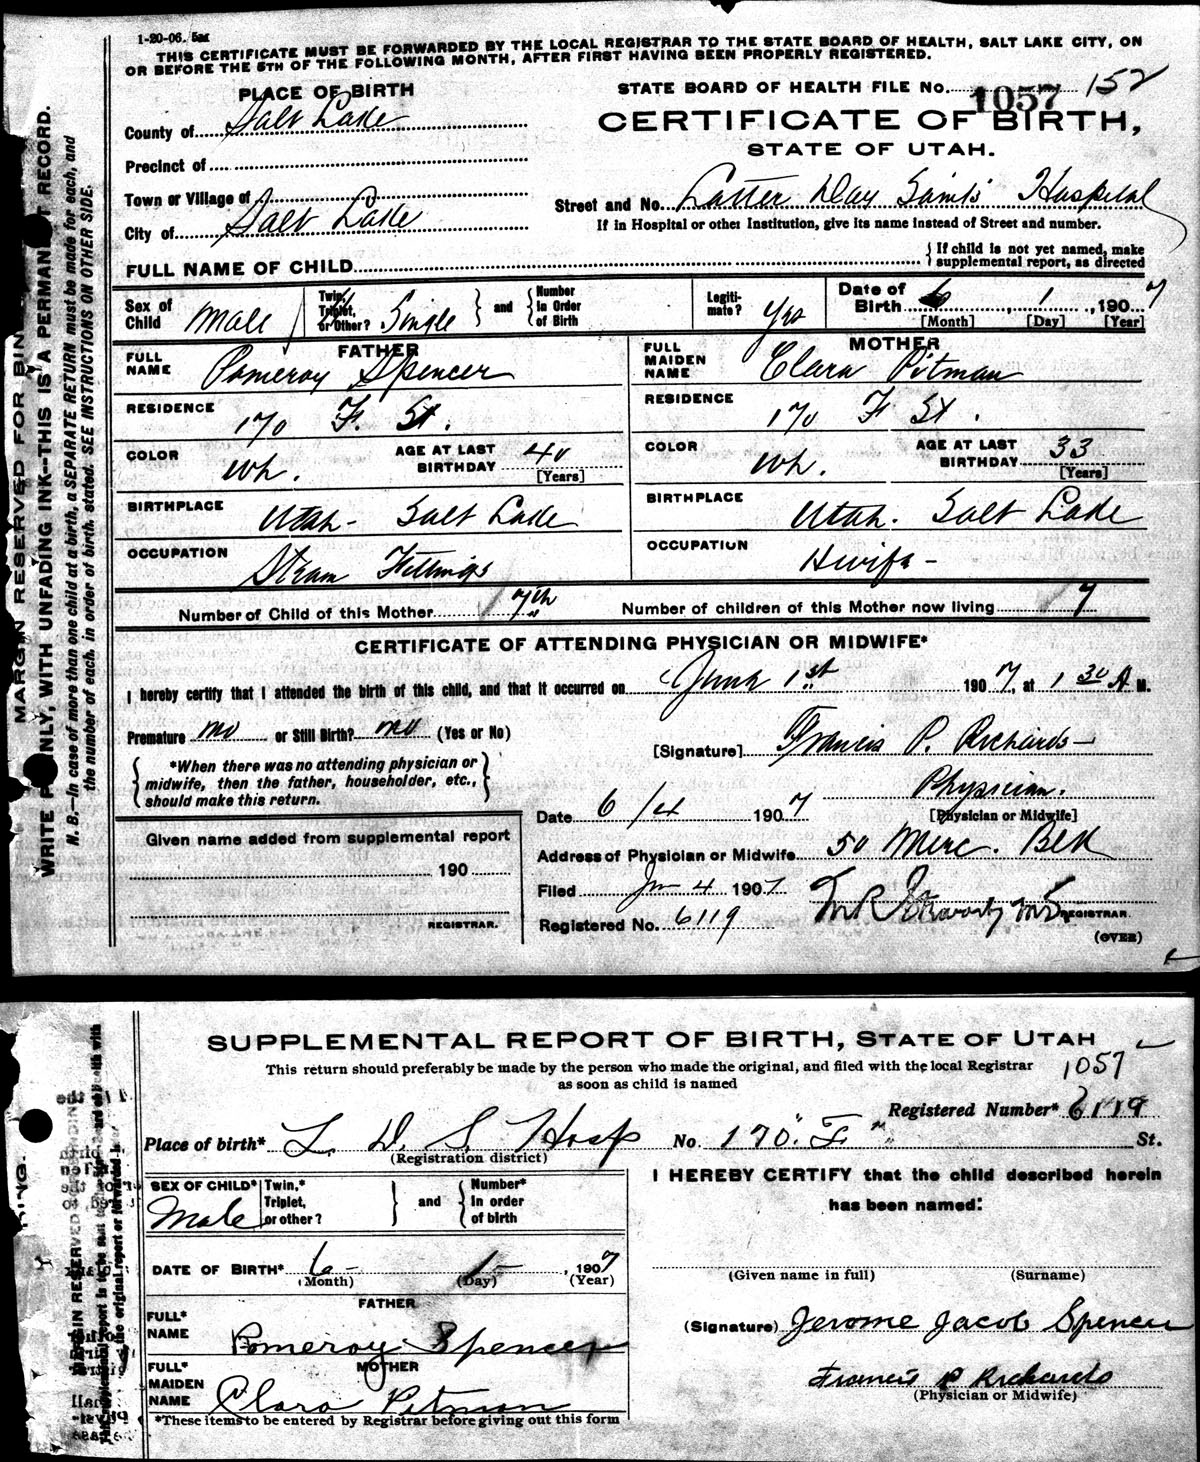 1-20-06. 5M
THIS CERTIFICATE MUST BE FORWARDED BY THE LOCAL REGISTRAR TO THE STATE BOARD OF HEALTH, SALT LAKE CITY, ON
OR BEFORE THE 5TH OF THE FOLLOWING MONTH, AFTER FIRST HAVING BEEN PROPERLY REGISTERED.
PLACE OF BIRTH
STATE BOARD OF HEALTH FILE No. 1057 152
County of Salt Lake
CERTIFICATE OF BIRTH,
STATE OF UTAH.
Precinct of
Town or Village of
Street and No. Latter Day Saints Hospital
City of Salt Lake
If in Hospital or other Institution, give its name instead of Street and number.
FULL NAME OF CHILD
If child is not yet named, make
supplemental report, as directed
Sex of Child Male
Twin, Triplet, or Other? Single
and
Number in Order of Birth
Legitimate? Yes
Date of Birth 6, 1, 1907
[Month] [Day] [Year]
FATHER
FULL NAME Pomeroy Spencer
RESIDENCE 170 F. St.
COLOR Wh. AGE AT LAST BIRTHDAY 40
[Years]
BIRTHPLACE Utah - Salt Lake
OCCUPATION Steam Fittings
MOTHER
FULL MAIDEN NAME Clara Pitman
RESIDENCE 170 F St.
COLOR Wh. AGE AT LAST BIRTHDAY 33
[Years]
BIRTHPLACE Utah. Salt Lake
OCCUPATION Hwife -
Number of Child of this Mother 7th Number of children of this Mother now living 7
CERTIFICATE OF ATTENDING PHYSICIAN OR MIDWIFE*
I hereby certify that I attended the birth of this child, and that it occurred on June 1st 1907, at 1 30 A M.
Premature no or Still Birth? no (Yes or No)
[Signature] Francis P. Richards
*When there was no attending physician or
midwife, then the father, householder, etc.,
should make this return.
Physician.
[Physician or Midwife]
Date 6/4 1907
Given name added from supplemental report
190
REGISTRAR.
Address of Physician or Midwife 50 Merc. Blk
Filed Jn 4 1907
REGISTRAR.
Registered No. 6119
(OVER)
MARGIN RESERVED FOR BIN
WRITE P ONLY, WITH UNFADING INK--THIS IS A PERMAN T RECORD.
N. B.--In case of more than one child at a birth, a SEPARATE RETURN must be made for each, and
the number of each, in order of birth, stated. SEE INSTRUCTIONS ON OTHER SIDE.
SUPPLEMENTAL REPORT OF BIRTH, STATE OF UTAH
This return should preferably be made by the person who made the original, and filed with the local Registrar
as soon as child is named
1057
Registered Number* 6119
Place of birth* L. D. S. Hosp No. 170 F St.
(Registration district)
SEX OF CHILD* Male
Twin,* Triplet, or other?
and
Number* In order of birth
DATE OF BIRTH* 6 - 1 - , 1907
(Month) (Day) (Year)
FATHER
FULL* NAME Pomeroy Spencer
MOTHER
FULL* MAIDEN NAME Clara Pitman
*These items to be entered by Registrar before giving out this form
I HEREBY CERTIFY that the child described herein
has been named:
(Given name in full) (Surname)
(Signature) Jerome Jacob Spencer
Francis P Richards
(Physician or Midwife)